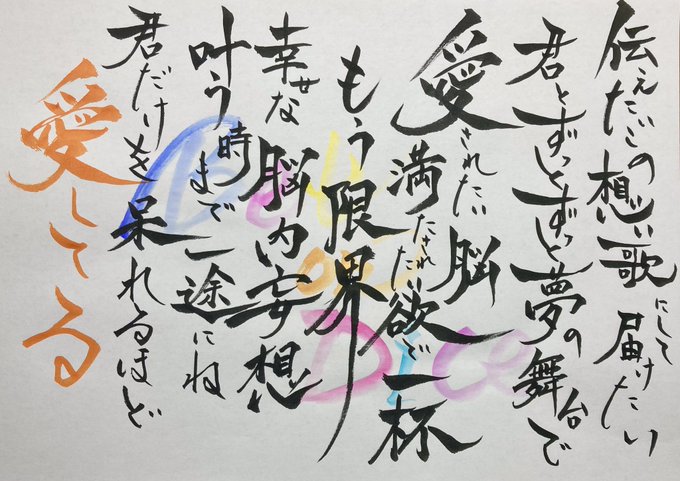 伝えたいこの想い歌にして届けたい
君とずっとずっと夢の舞台で
愛されたい脳
満たされたい欲で一杯
もう限界
幸せな脳内妄想
叶う時まで一途にね
君だけを呆れるほど
愛してる
Dice